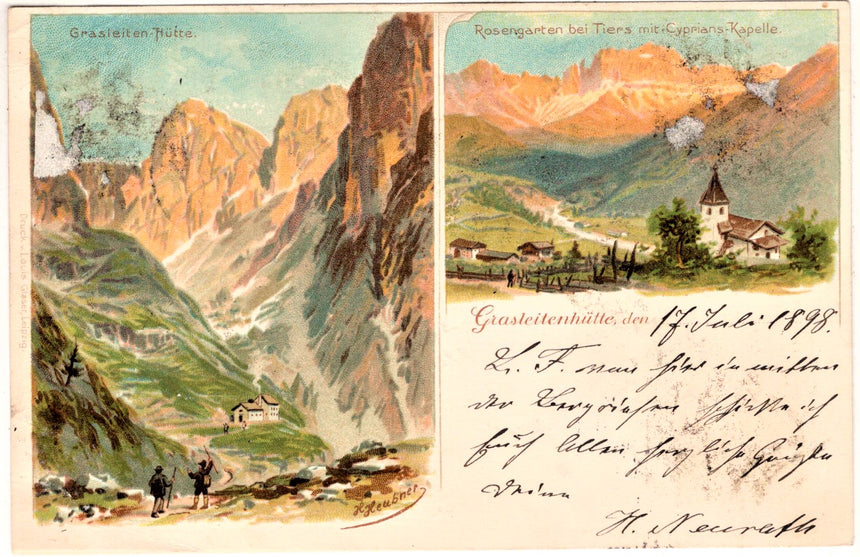 Grasleiten-Hütte.
Rosengarten bei Tiers mit Cyprians-Kapelle.
Druck v. Louis Glaser, Leipzig
H Heubner
Grasleitenhütte, den 17. Juli 1898.
L. F. von hier in mitten
der Bergriesen schicke ich
Euch Allen herzliche Grüße
H. Neurath